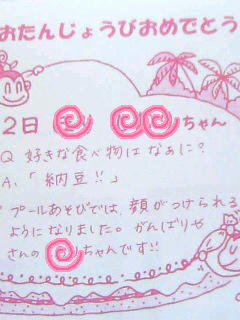 おたんじょうびおめでとう
2日 ちゃん
Q 好きな食べ物はなぁに?
A、「納豆!!」
プールあそびでは、顔がつけられる
ようになりました。がんばりや
さんの ちゃんです!!